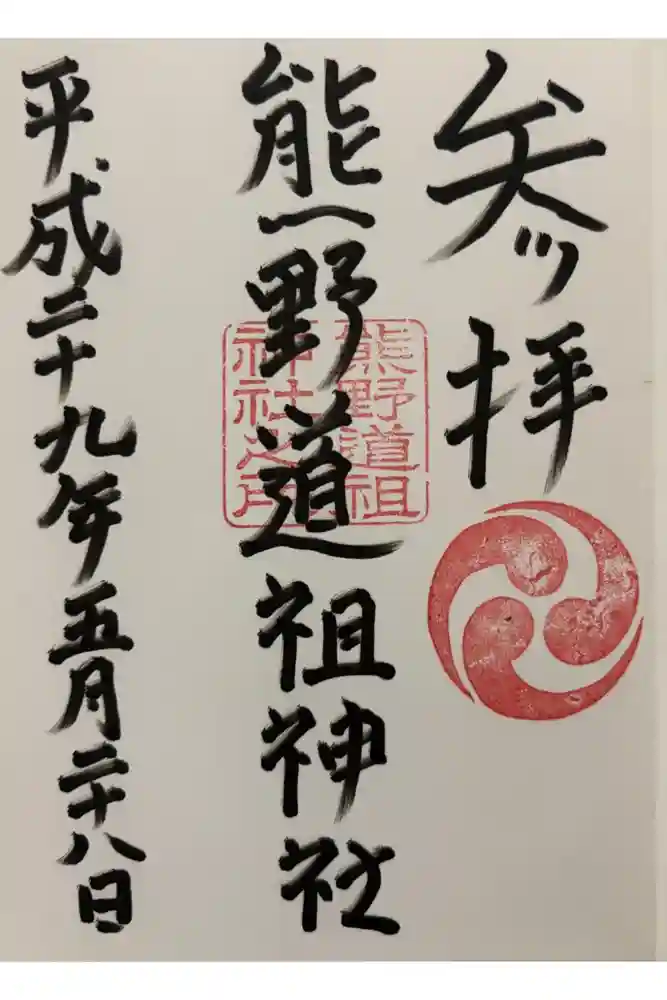 参拝
熊野道祖神社
熊野道祖
神社之印
平成二十九年五月二十八日